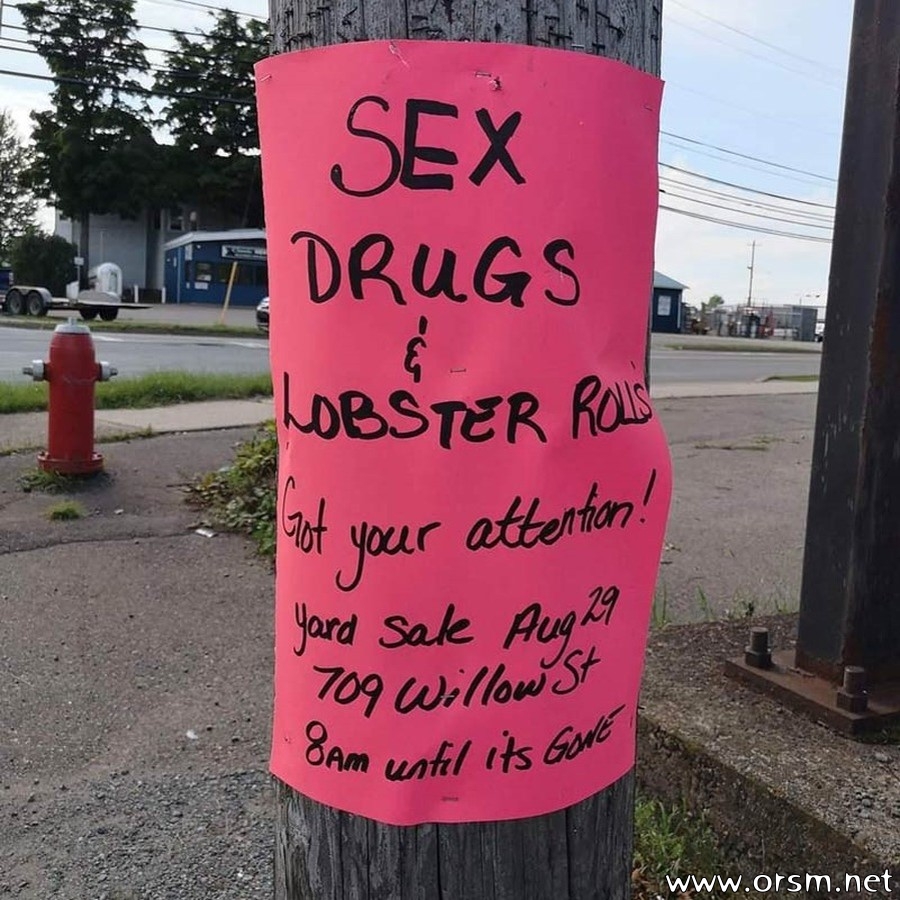 SEX
DRUGS
&
LOBSTER ROLLS
Got your attention!
yard sale Aug 29
709 Willow St
8am until its GONE
www.orsm.net